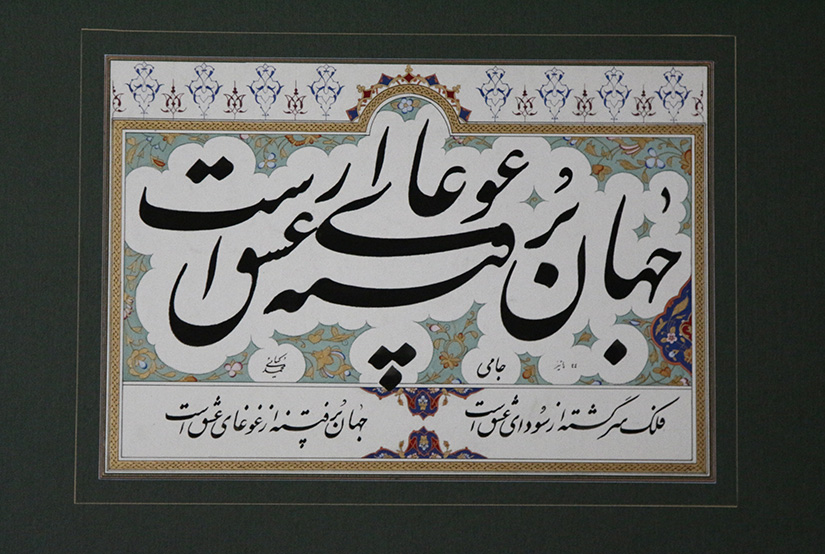 جهان پر فتنه از غوغای عشق است
جامی
فلک سرگشته از سودای عشق است
جهان پر فتنه از غوغای عشق است